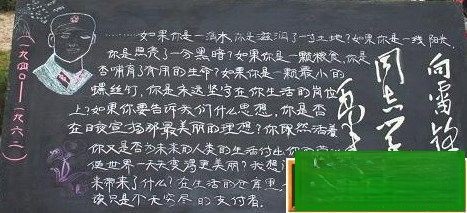 （一九四〇——一九六二）
……如果你是一滴水，你是滋润了一寸土地？如果你是一线阳光，
你是照亮了一分黑暗？如果你是一颗粮食，你是
否哺育了有用的生命？如果你是一颗最小的
螺丝钉，你是永远坚守在你生活的岗位
上？如果你要告诉我们什么思想，你是否
在日夜宣扬那最美丽的理想？你既然活着
你又是否为未来的人类的生活付出你的
使世界一天天变得更美丽？我想
来带来了什么？在生活的仓库里
该只是个无穷尽的支付者。
向雷锋
同志学